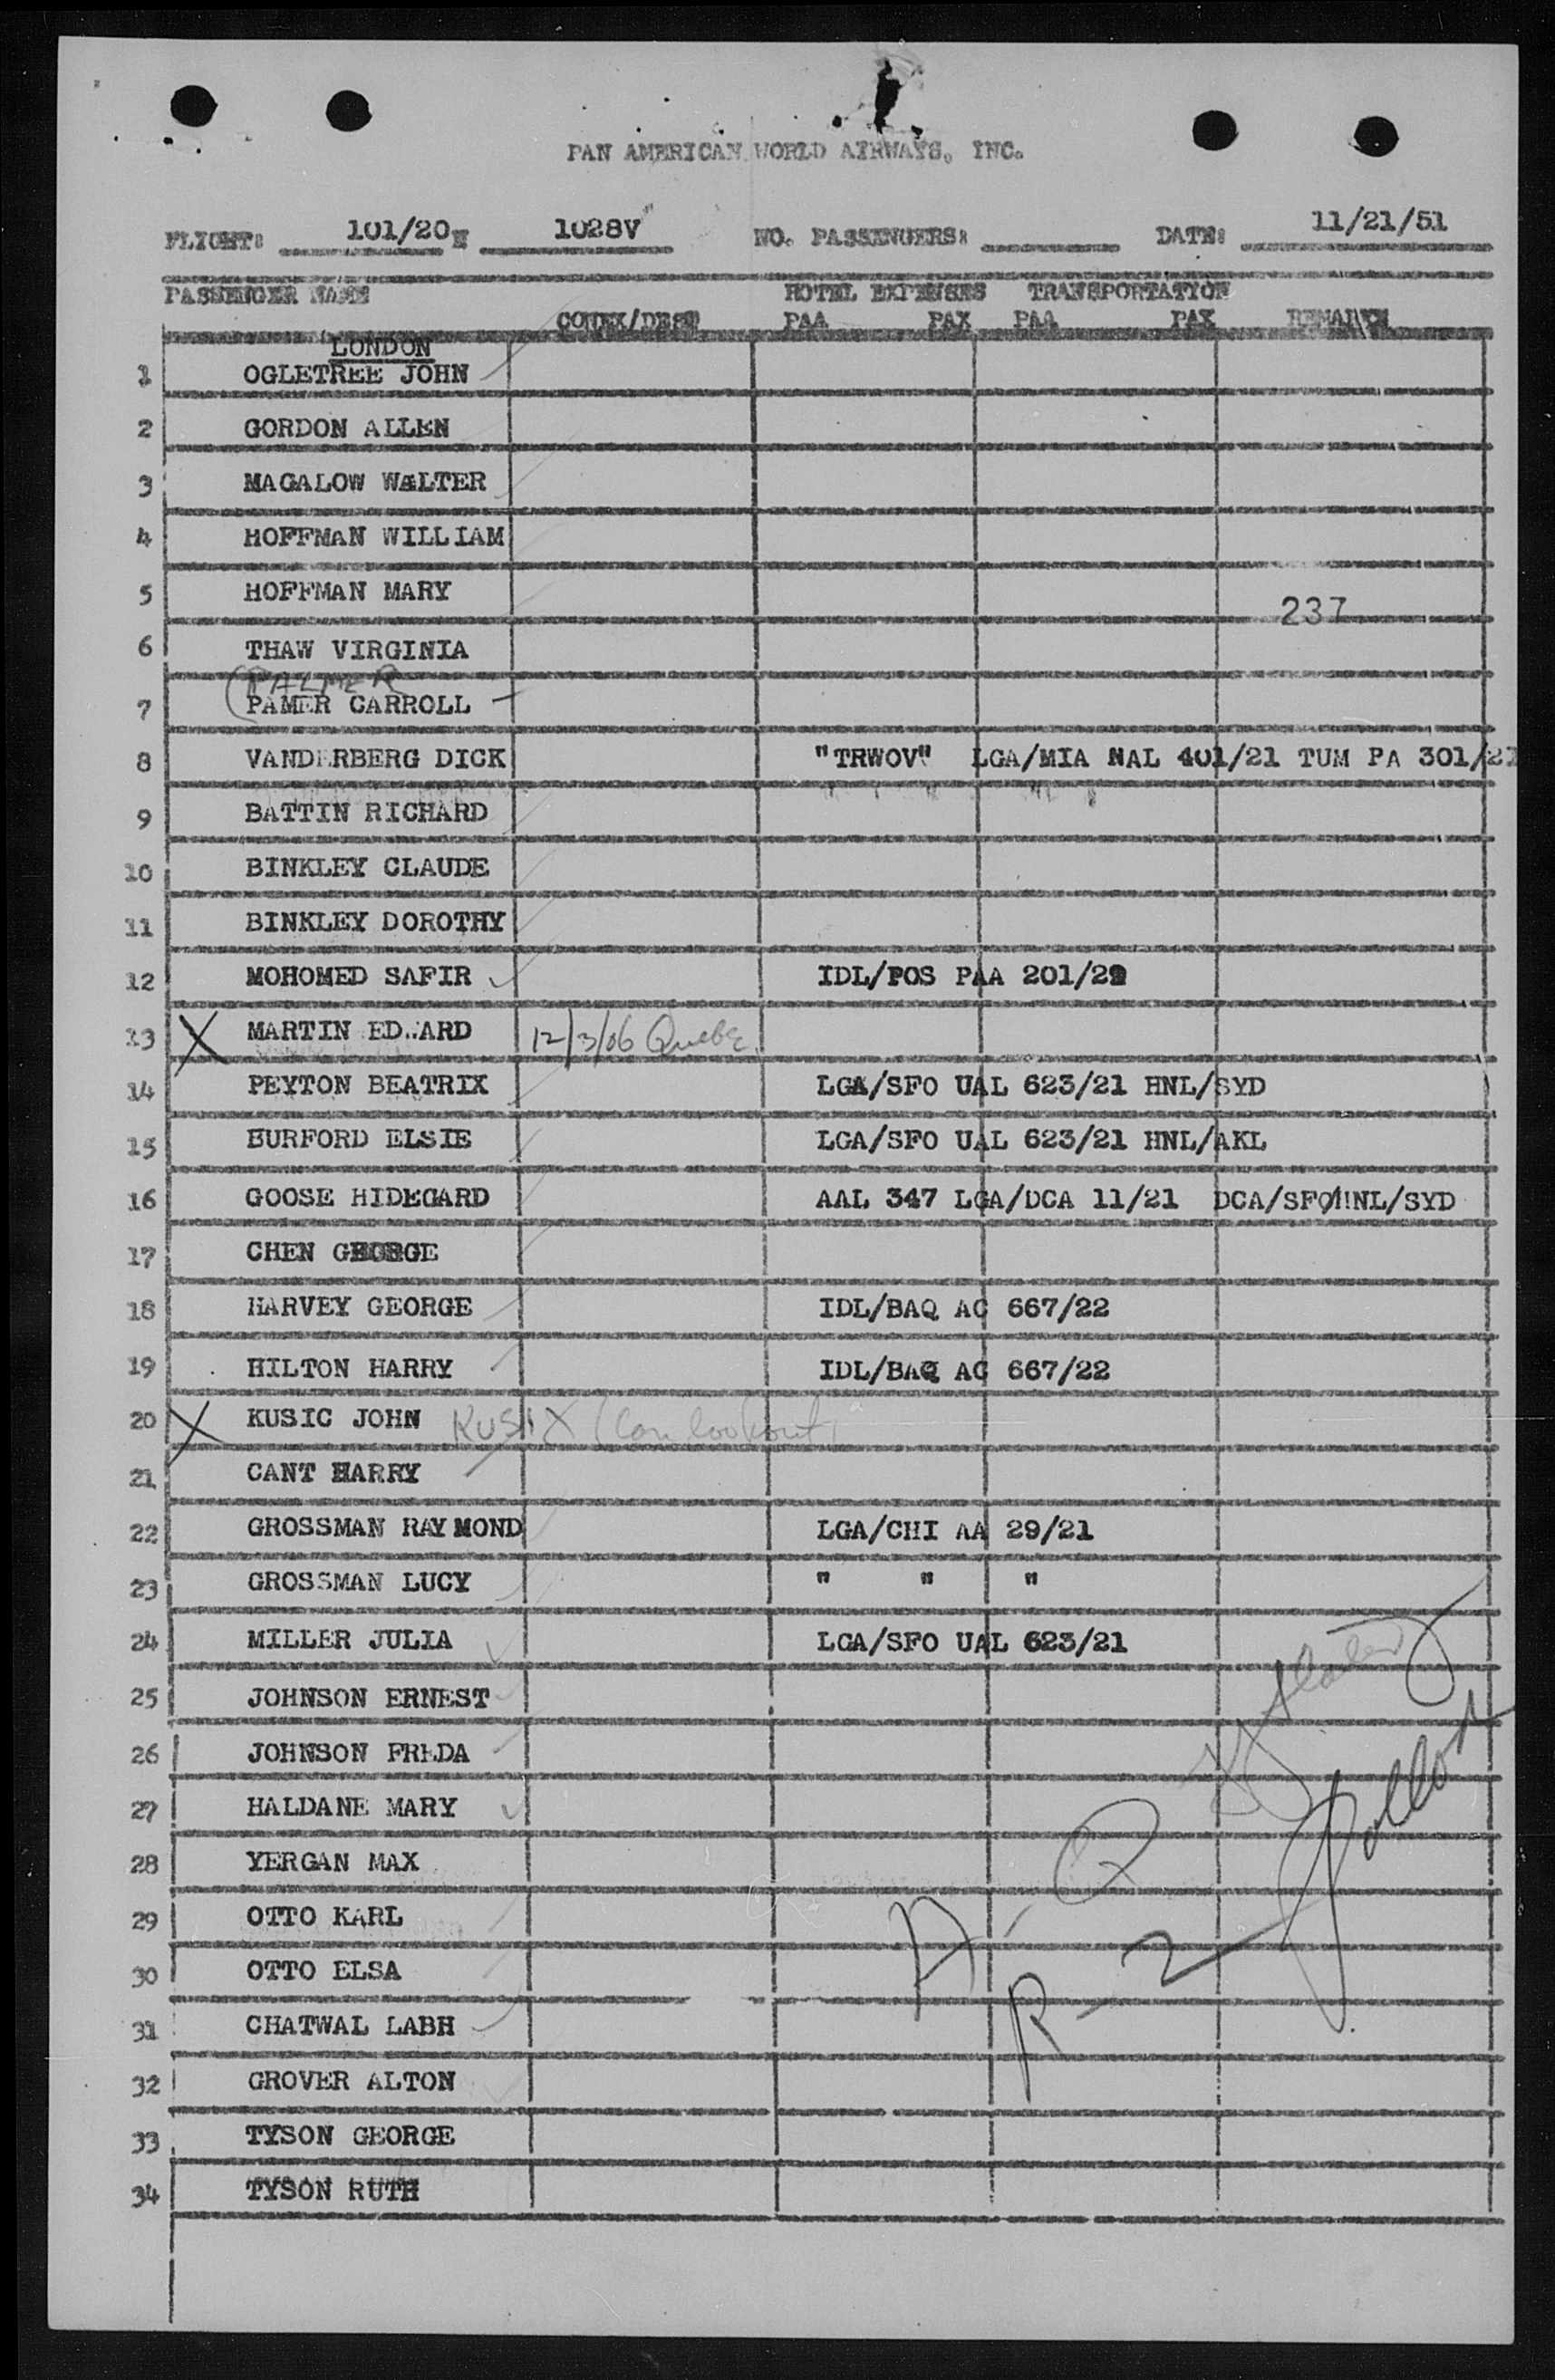 PAN AMERICAN WORLD AIRWAYS, INC.
FLIGHT: 101/20 N 1028V NO. PASSENGERS: DATE: 11/21/51
PASSENGER NAME HOTEL EXPENSES TRANSPORTATION
CONEX/DEST PAA PAX PAA PAX REMARKS
LONDON
1 OGLETREE JOHN
2 GORDON ALLEN
3 MAGALOW WaLTER
4 HOFFMAN WILLIAM
5 HOFFMAN MARY
237
6 THAW VIRGINIA
(PALMER
7 PAMER CARROLL
8 VANDERBERG DICK "TRWOV" LGA/MIA NAL 401/21 TUM PA 301/21
9 BATTIN RICHARD
10 BINKLEY CLAUDE
11 BINKLEY DOROTHY
12 MOHOMED SAFIR IDL/POS PAA 201/29
13 X MARTIN ED..ARD 12/3/06 Quebc.
14 PEYTON BEATRIX LGA/SFO UAL 623/21 HNL/SYD
15 BURFORD ELSIE LGA/SFO UAL 623/21 HNL/AKL
16 GOOSE HIDEGARD AAL 347 LGA/DCA 11/21 DCA/SFO/HNL/SYD
17 CHEN GEORGE
18 HARVEY GEORGE IDL/BAQ AC 667/22
19 HILTON HARRY IDL/BAQ AC 667/22
20 X KUSIC JOHN KUSIX (Can lookout)
21 CANT HARRY
22 GROSSMAN RAYMOND LGA/CHI AA 29/21
23 GROSSMAN LUCY " " "
24 MILLER JULIA LGA/SFO UAL 623/21
25 JOHNSON ERNEST
26 JOHNSON FREDA
27 HALDANE MARY
28 YERGAN MAX
29 OTTO KARL
30 OTTO ELSA
R-2
31 CHATWAL LABH
32 GROVER ALTON
33 TYSON GEORGE
34 TYSON RUTH